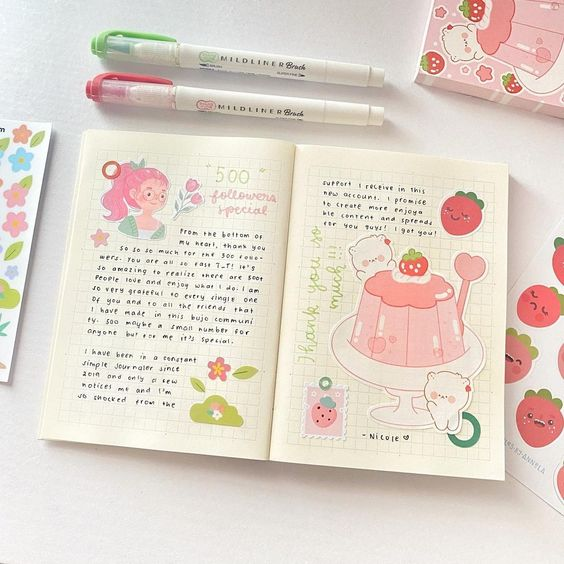 MILDLINER Brush
MILDLINER Brush
"500
followers
special
From the bottom of
my heart, thank you
so so so much for the 500 follo-
wers. You are all so fast T-T! it's
so amazing to realize there are 500+
people love and enjoy what i do. I am
so very grateful to every single one
of you and to all the friends that
I have made in this bujo communi
ty. 500 maybe a small number for
anyone but for me it's special.
I have been in a constant
simple journaler since
2019 and only a few
notices me and I'm
so shocked from the
support I receive in this
new account. I promise
to create more enjoya
ble content and spreads
for you guys! I got you!
Thank you so
much!!
-Nicole